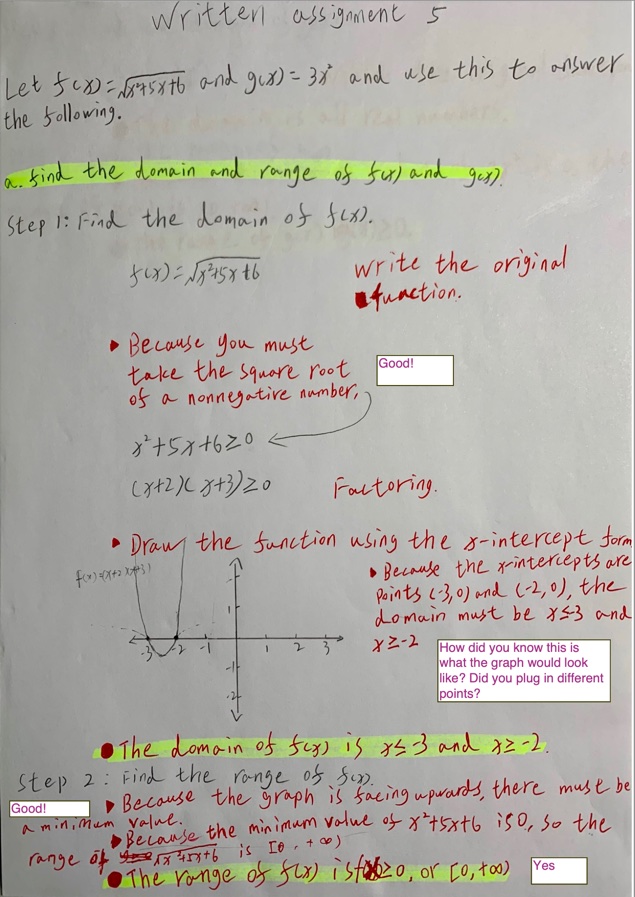 Written assignment 5
Let f(x)=√x²+5x+6 and g(x)=3x² and use this to answer
the following.
a. find the domain and range of f(x) and g(x).
Step 1: Find the domain of f(x).
f(x)=√x²+5x+6
Write the original
function.
Because you must
take the square root
of a nonnegative number,
Good!
x²+5x+6≥0
(x+2)(x+3)≥0
Factoring.
Draw the function using the x-intercept form
f(x)=(x+2)(x+3)
-3 -2 -1 1 2 3
1
-1
-2
Because the x-intercepts are
points (-3,0) and (-2,0), the
domain must be x≤-3 and
x≥-2
How did you know this is
what the graph would look
like? Did you plug in different
points?
The domain of f(x) is x≤-3 and x≥-2.
Step 2: Find the range of f(x).
Good!
Because the graph is facing upwards, there must be
a minimum value.
Because the minimum value of x²+5x+6 is 0, so the
range of √x²+5x+6 is [0, +∞)
The range of f(x) is f(x)≥0, or [0,+∞)
Yes